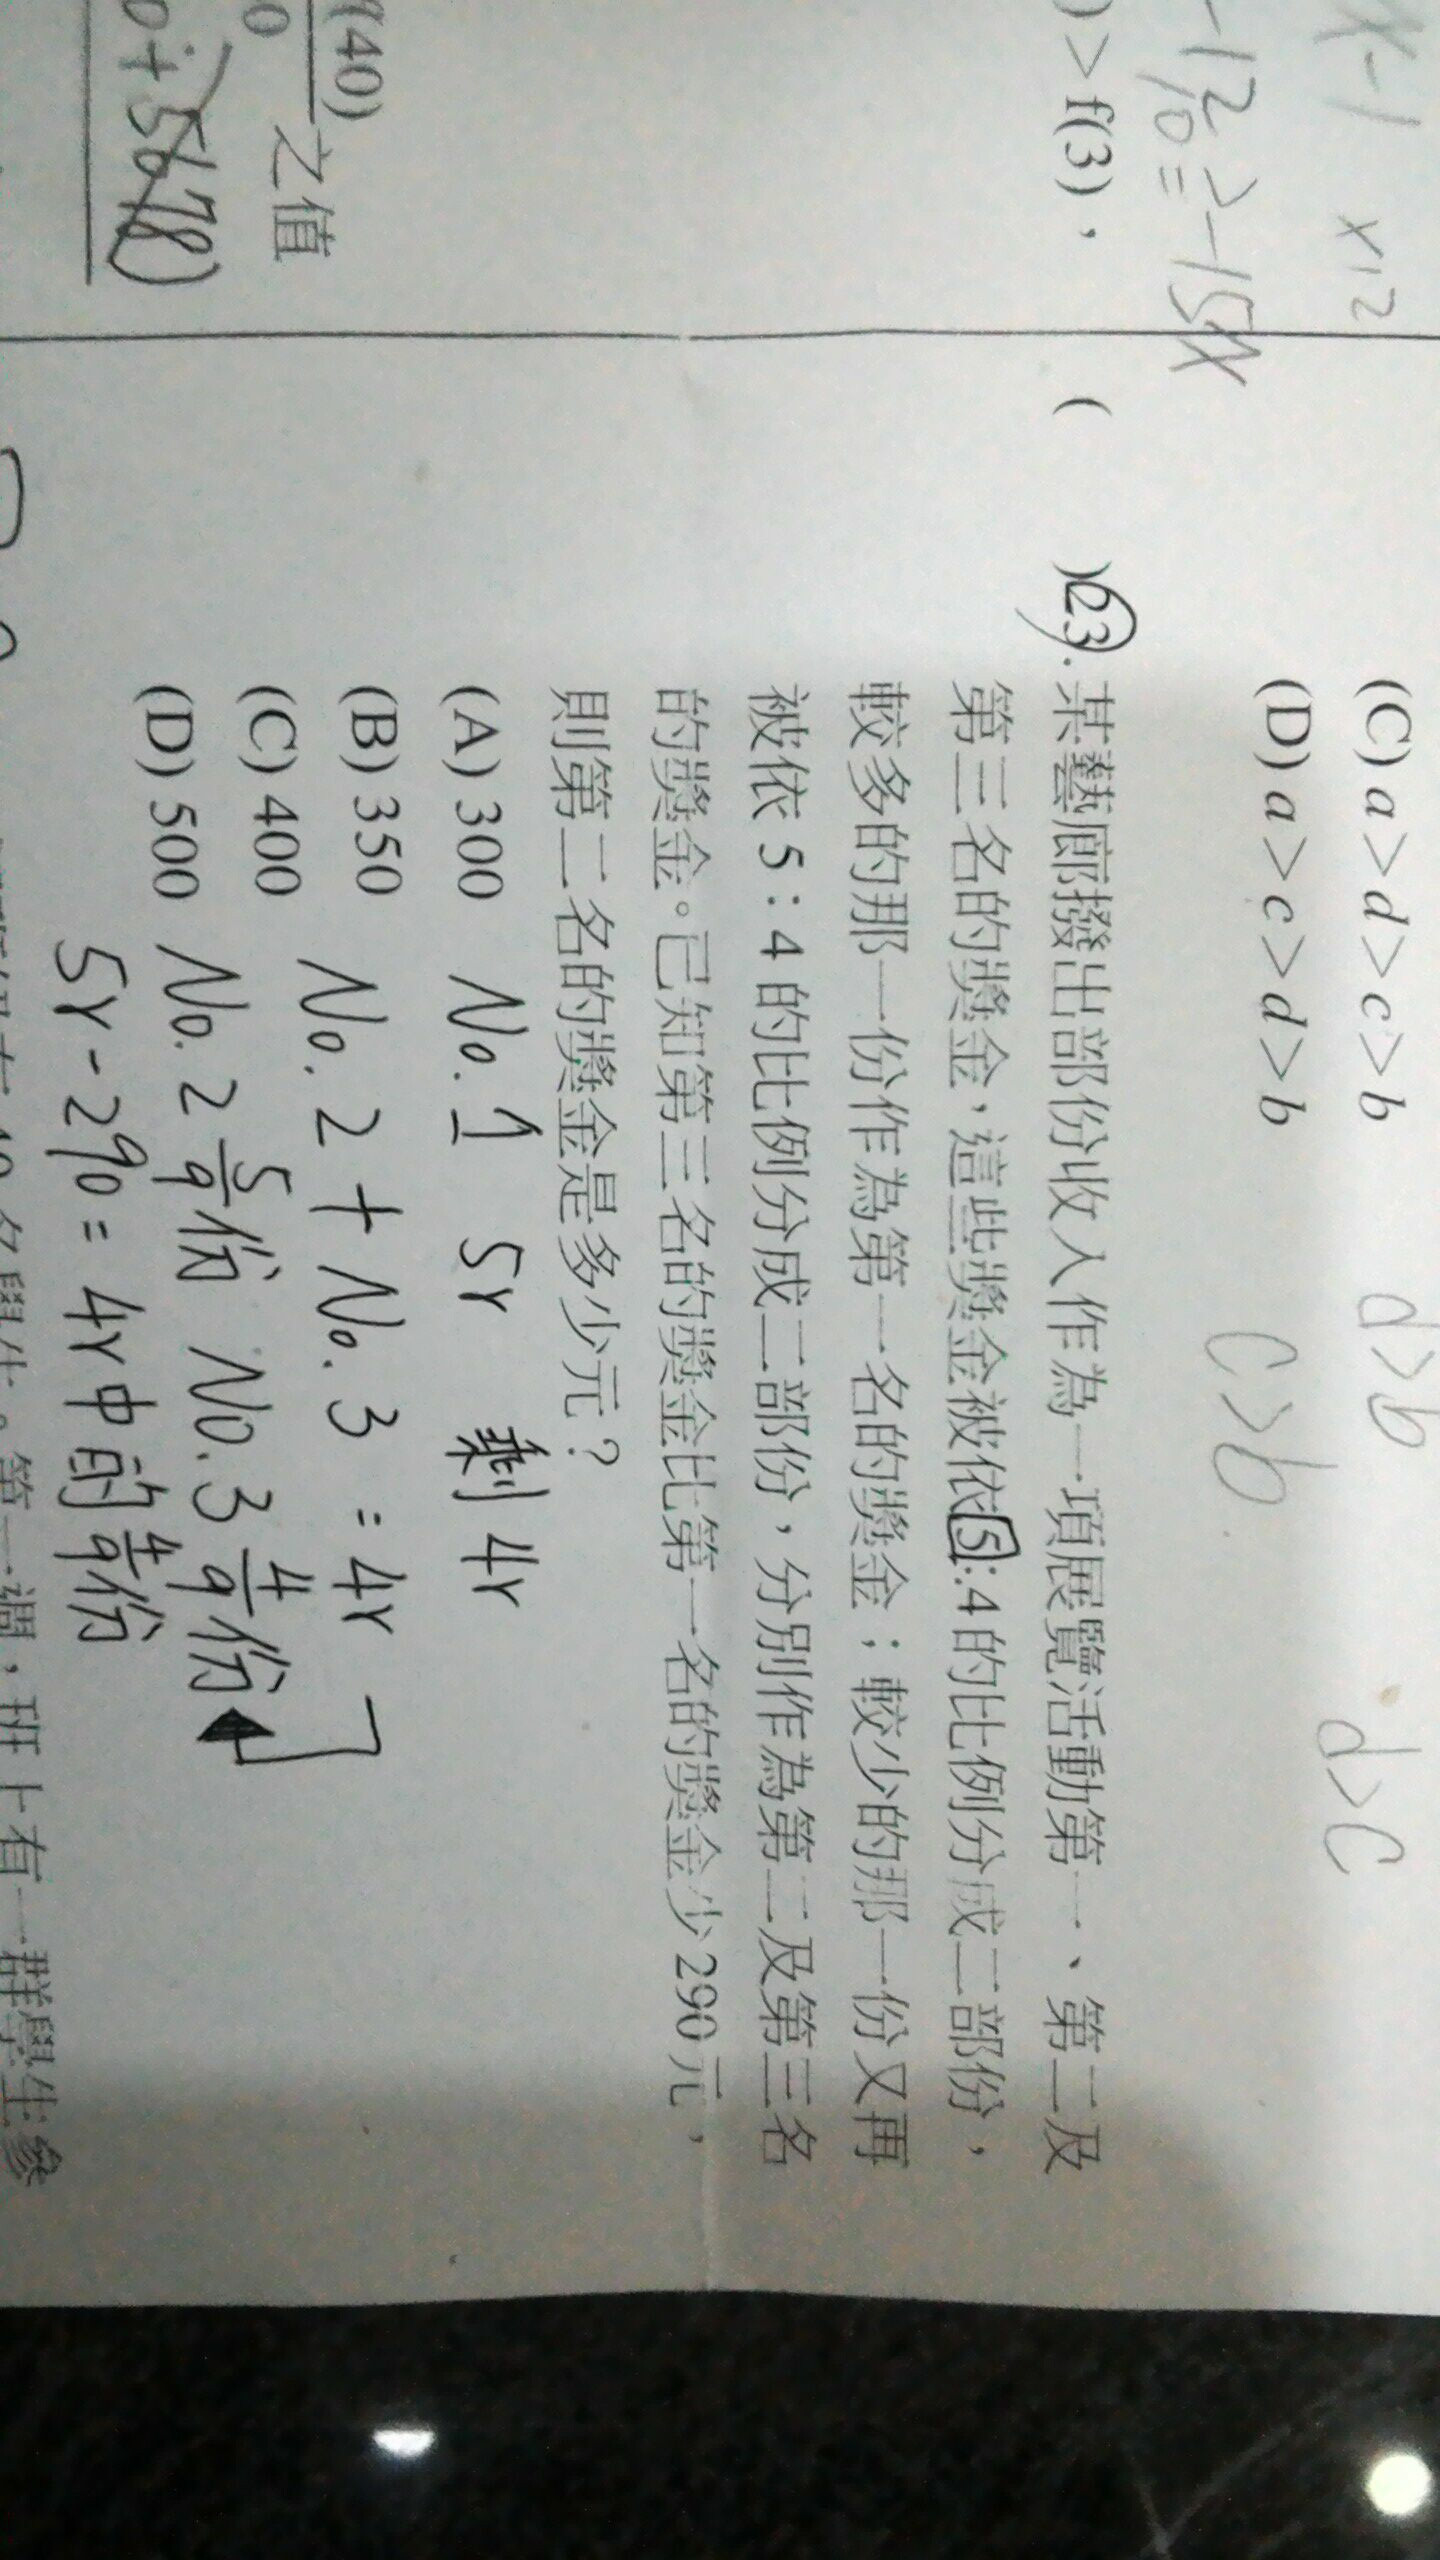 x-1 x12
-120≥-15x
) > f(3)，
(40)
之值
0
5678)
(C) a > d > c > b
d>b
d>c
(D) a > c > d > b
c>b
( )23.某藝廊撥出部份收入作為一項展覽活動第一、第二及
第三名的獎金，這些獎金被依5:4的比例分成二部份，
較多的那一份作為第一名的獎金；較少的那一份又再
被依 5：4 的比例分成二部份，分別作為第二及第三名
的獎金。已知第三名的獎金比第一名的獎金少290元，
則第二名的獎金是多少元？
(A) 300
(B) 350
(C) 400
(D) 500
No. 1 5r 剩 4r
No. 2 + No. 3 = 4r
No. 2 5/9份 No. 3 4/9份
5r - 290 = 4r中的 4/9份
名學生。第一週，班上有一群學生參